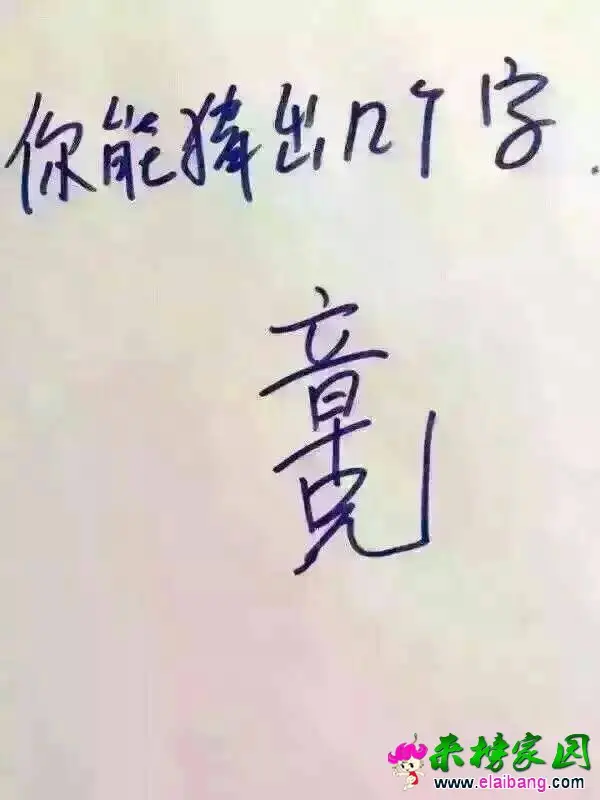 你能猜出几个字.
来榜家园
www.elaibang.com